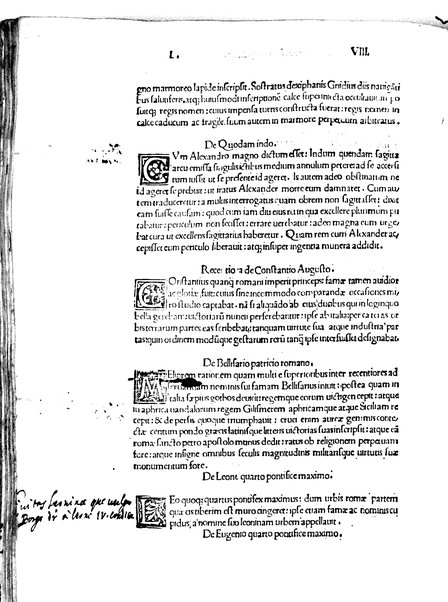 L. VIII.
gno marmoreo lapide inscripsit. Sostratus dexiphanis Gnidius diis
suitq; regis nomen: cuius impensa turris constructa fuerat: regis nomen in
calce caducum ac fragile, suum autem in marmore perpetuum arbitratus.
De Quodam indo.
CVm Alexandro magno dictum esset: Indum quendam sagitta
arcu emissa medium annulum petere: ad se
tum iussit ut se presente id ageret. Is autem
ageret se prebuit: ut iratus Alexander morte eum damnaret. Cum au
tem traduceretur: a multis interrogatus quam obrem non sagittasset: dixit
eam fuisse causam: quod cum iam diu eius rei in qua excellere plurimum pu
tabatur: periculum non fecisset: errare uerebatur: adeo magna cum urge
bat cura ut excellens sagittarius haberetur. Quam rem cum Alexander ac
cepisset eum periculo liberauit: atq; insuper ingentia munera addidit.
de Constantio Augusto.
COnstantius quanq; romani imperii princeps famæ tamen auidior
ac gloriæ fuit: cuius sine intermodo comparandæ occasiones mi
ro studio captabat. nā si aliquādo ab eius ducibus qui in longinquo
bella gerebant uictoriarū nuncii perferebantur: ipse
partes eas scribebat: tanquam uirtute sua atque industria par
tas: quin ordinem modūque gestarum rerū tanq; ipse interfuisset designabat.
De Bellisario patricio romano.
rationem quam multi e superioribus inter recentiores ad
nominis sui famam Bellisarius iniuit: postea quam in
italia sæpius gothos deuicit: regemque eorum uictigen cepit: atque
in aphrica uandalorum regem Gilismerem aphricamque atque Siciliam re
cepit: & de persis quoque triumphauit: cruci enim aureæ gemmis contec
tæ centum pondo græcis latinisque litteris uictorias suas inscripsit: atque eā
romæ sancto petro apostolo munus dedit: ratus ob religionem perpetuam
fore: atque insigne omnibus seculis magnitudinis militarisque uirtutis suæ
monumentum fore.
De Leone quarto pontifice maximo.
LEo quoq; quartus pontifex maximus: dum urbis romæ partem
quæ cis tiberim est muro cingeret: ipse etiam famæ ac nominis cu
pidus, a nomine suo leoninam urbem appellauit.
De Eugenio quarto pontifice maximo.